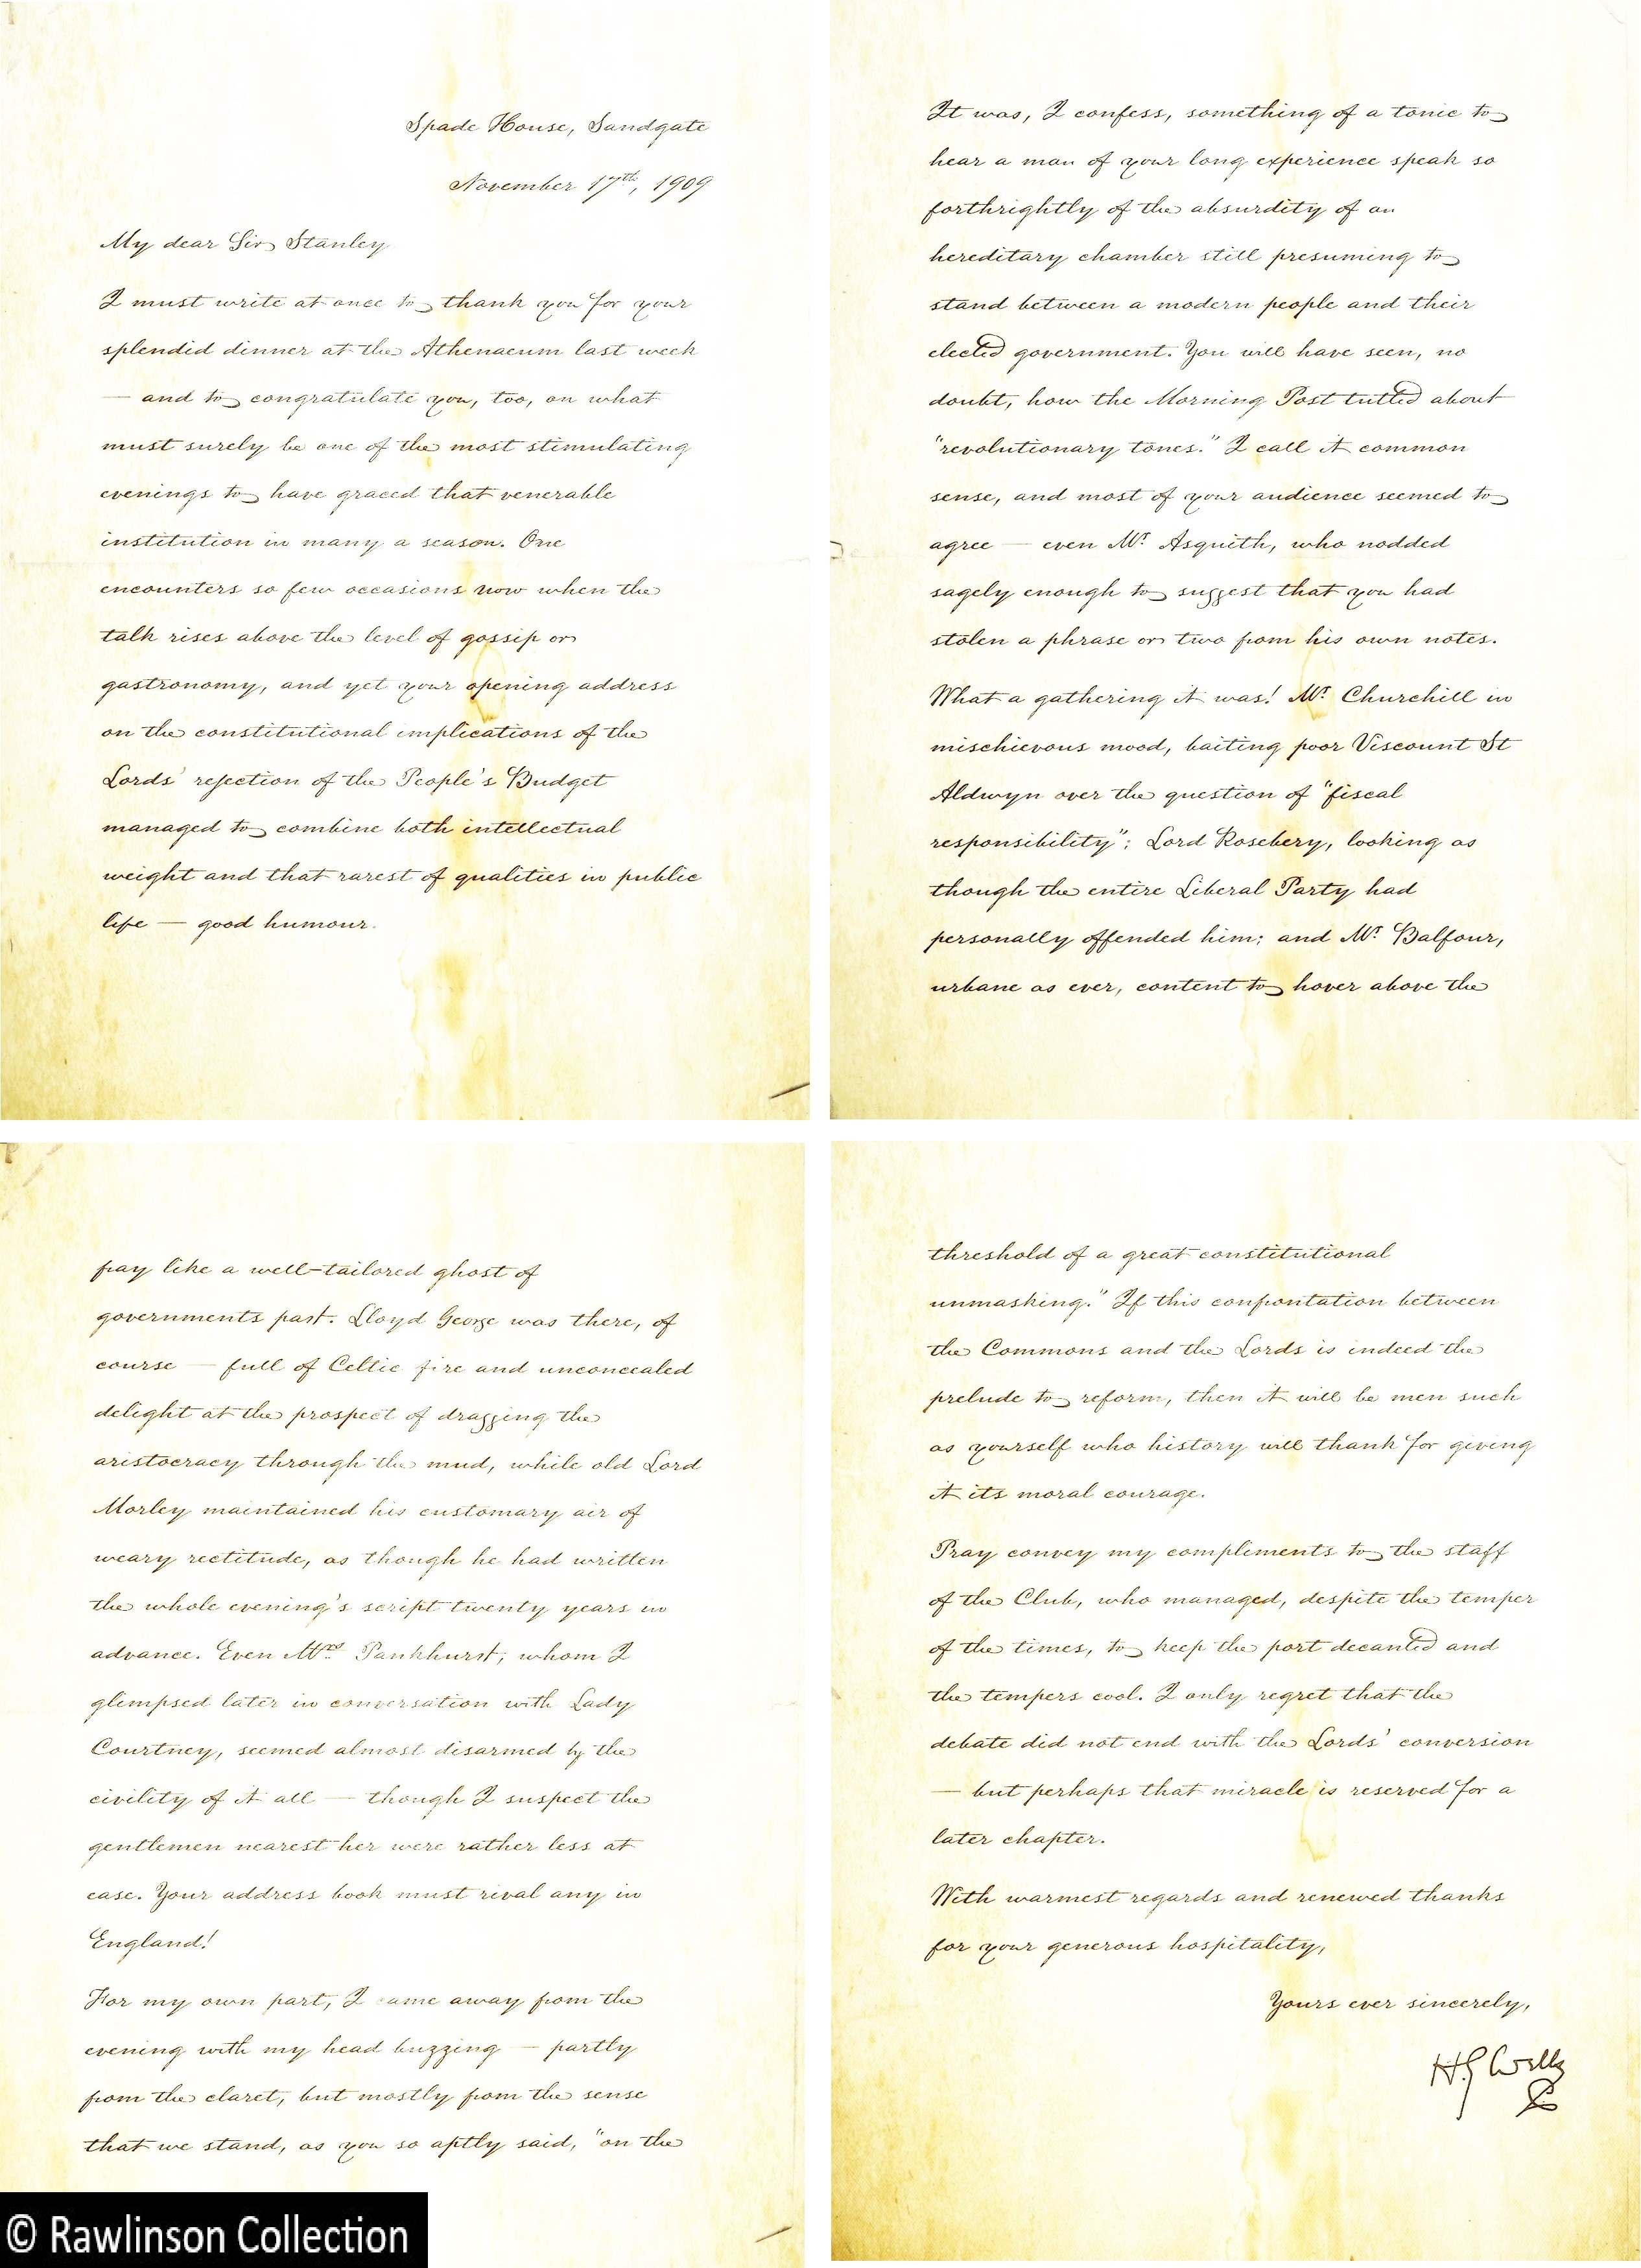 Spade House, Sandgate
November 17th, 1909
My dear Sir Stanley
I must write at once to thank you for your
splendid dinner at the Athenaeum last week
— and to congratulate you, too, on what
must surely be one of the most stimulating
evenings to have graced that venerable
institution in many a season. One
encounters so few occasions now when the
talk rises above the level of gossip or
gastronomy, and yet your opening address
on the constitutional implications of the
Lords' rejection of the People's Budget
managed to combine both intellectual
weight and that rarest of qualities in public
life — good humour.
It was, I confess, something of a tonic to
hear a man of your long experience speak so
forthrightly of the absurdity of an
hereditary chamber still presuming to
stand between a modern people and their
elected government. You will have seen, no
doubt, how the Morning Post tutted about
"revolutionary tones." I call it common
sense, and most of your audience seemed to
agree — even Mr. Asquith, who nodded
sagely enough to suggest that you had
stolen a phrase or two from his own notes.
What a gathering it was! Mr. Churchill in
mischievous mood, baiting poor Viscount St
Aldwyn over the question of "fiscal
responsibility"; Lord Rosebery, looking as
though the entire Liberal Party had
personally offended him; and Mr. Balfour,
urbane as ever, content to hover above the
fray like a well-tailored ghost of
governments past. Lloyd George was there, of
course — full of Celtic fire and unconcealed
delight at the prospect of dragging the
aristocracy through the mud, while old Lord
Morley maintained his customary air of
weary rectitude, as though he had written
the whole evening's script twenty years in
advance. Even Mrs. Pankhurst, whom I
glimpsed later in conversation with Lady
Courtney, seemed almost disarmed by the
civility of it all — though I suspect the
gentlemen nearest her were rather less at
ease. Your address book must rival any in
England!
For my own part, I came away from the
evening with my head buzzing — partly
from the claret, but mostly from the sense
that we stand, as you so aptly said, "on the
threshold of a great constitutional
unmasking." If this confrontation between
the Commons and the Lords is indeed the
prelude to reform, then it will be men such
as yourself who history will thank for giving
it its moral courage.
Pray convey my compliments to the staff
of the Club, who managed, despite the temper
of the times, to keep the port decanted and
the tempers cool. I only regret that the
debate did not end with the Lords' conversion
— but perhaps that miracle is reserved for a
later chapter.
With warmest regards and renewed thanks
for your generous hospitality,
Yours ever sincerely,
H.G. Wells
© Rawlinson Collection